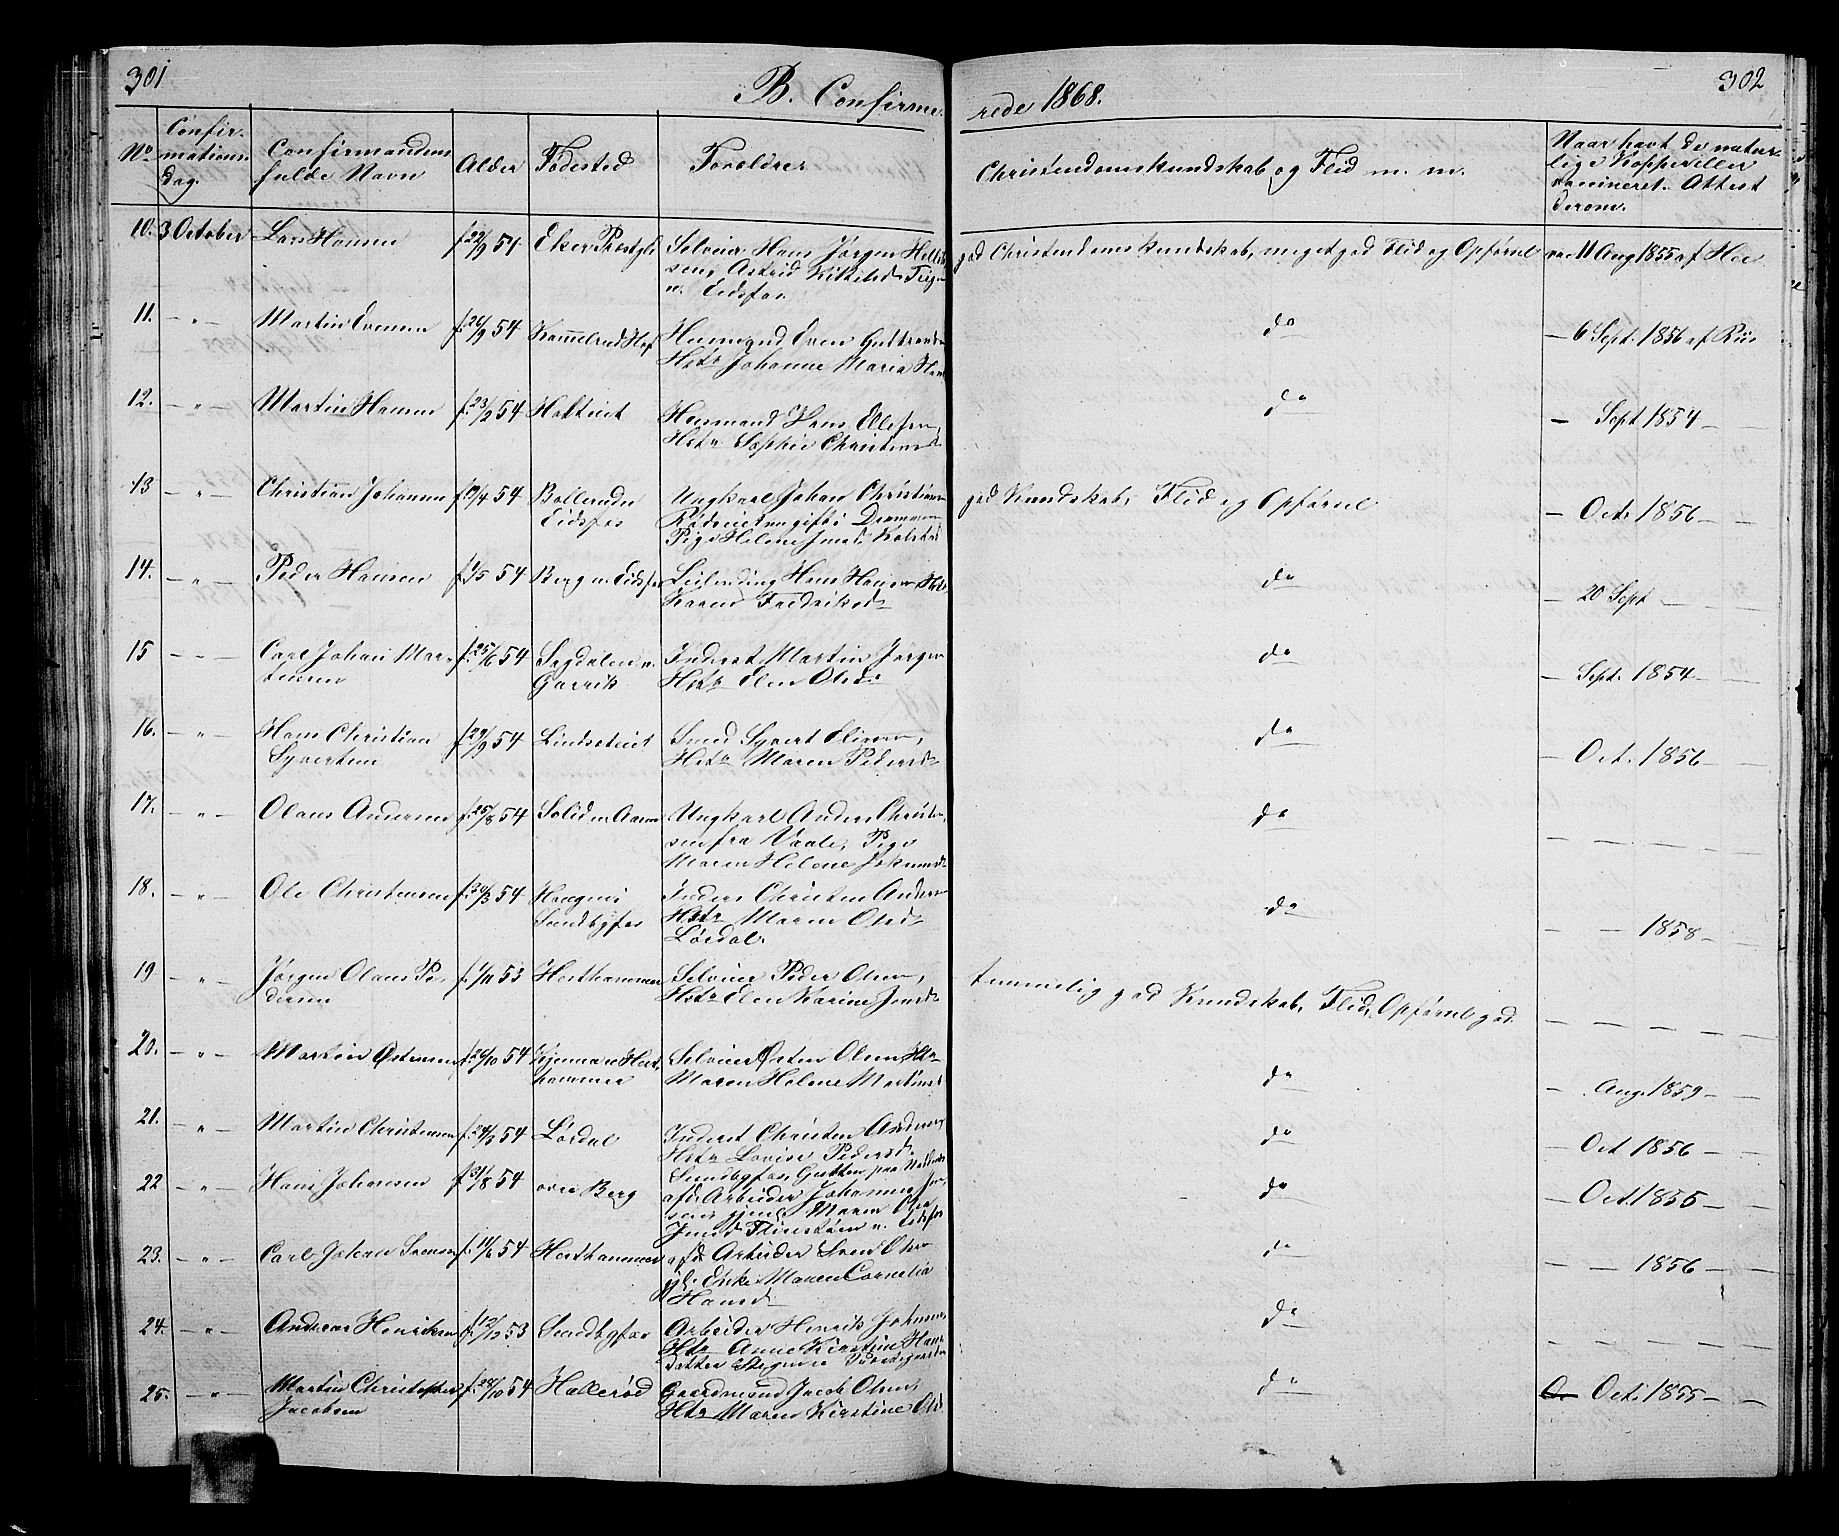 301
B. Confirme-
rede 1868.
302
No
Confir-
mations
Dag.
Confirmandens
fulde Navn
Alder
Fødested
Forældre
Christendomskundskab og Flid m. m.
Naar havt de natur-
lige Kopper eller
vaccineret. Attest
derom.
10. 3 October Lars Hansen f. 22/9 54 Eker Præstgld Selveier Hans Jørgen
Astrid
Eidsfos
god Christendoms kundskab, meget god Flid og Opførsel
11 Aug 1855 af
11. - " - Martin Evensen f. 26/9 54 Husmand Even
Hstr Johanne Maria
do
- 6 Sept. 1856 af Riis
12. - " - Martin Hansen f. 23/2 54 Husmand Hans Ellefsen,
Hstr Sophie
do
- Sept 1854 -
13 - " - Christian Johansen 54 Bollerud
Eidsfos
Ungkarl Johan Christiansen
gift i Drammen
Pige Helene
god Kundskab, Flid og Opførsel
- Oct. 1856 - -
14. - " - Peder Hansen f. 1/5 54 Berg v. Eidsfos Leilending Hans Hansen
Karen Fredriksd
do
- 20 Sept -
15 - " - Carl Johan Mar-
tinsen
f. 25/6 54 Sagdalen v.
Inderst Martin Jørgen
Hstr Elen Olsd
do
- Sept. 1854 -
16. - " - Hans Christian
Syvertsen
f. 29/9 54 Smed Syvert
Hstr Maren Pedersd
do
- Oct. 1856 -
17. - " - Olaus Andersen f. 25/8 54 Ungkarl Anders Christen-
sen fra Vaale, Pige
Maren Helene
do
- - - -
18. - " - Ole Christensen 54
Sundbyfos
Inders Christen Anders
Hstr Maren Olsd
Lørdal
do
- - 1858 -
19 - " - Jørgen Olaus Pe-
dersen
f. 1/11 53 Horthammer Selveier Peder Olsen,
Hstr Elen Karine Jensd
temmelig god Kundskab, Flid, Opførsel god.
- - - -
20. - " - Martin Østensen f. 26/10 54
hammer
Selveier Østen Olsen Hstr
Maren Helene Martinsd
do
- Aug. 1859 -
21. - " - Martin Christensen 54 Lørdal Inderst Christen Anders
Hstr Lovise Pedersd
Sundbyfos,
do
- Oct 1856 -
22 - " - Hans Johansen f. 31/8 54 øvre Berg
afd. Arbeider Johannes
Maren
do
- Oct. 1855 -
23. - " - Carl Johan Svensen 54 Horthammer afd. Arbeider Svend
Enke Maren Cornelia
Hansd
do
- - 1856 -
24. - " - Andreas Henriksen f. 12/12 53 Sundbyfos Arbeider Henrik Johannes
Hstr Anne Kirstine Hans
datter
do
- - - -
25. - " - Martin Christopher
Jacobsen
f. 28/10 54 Hallerød Gaardmand Jacob Olsen,
Hstr Maren Kirstine
do
Oct. 1855 -